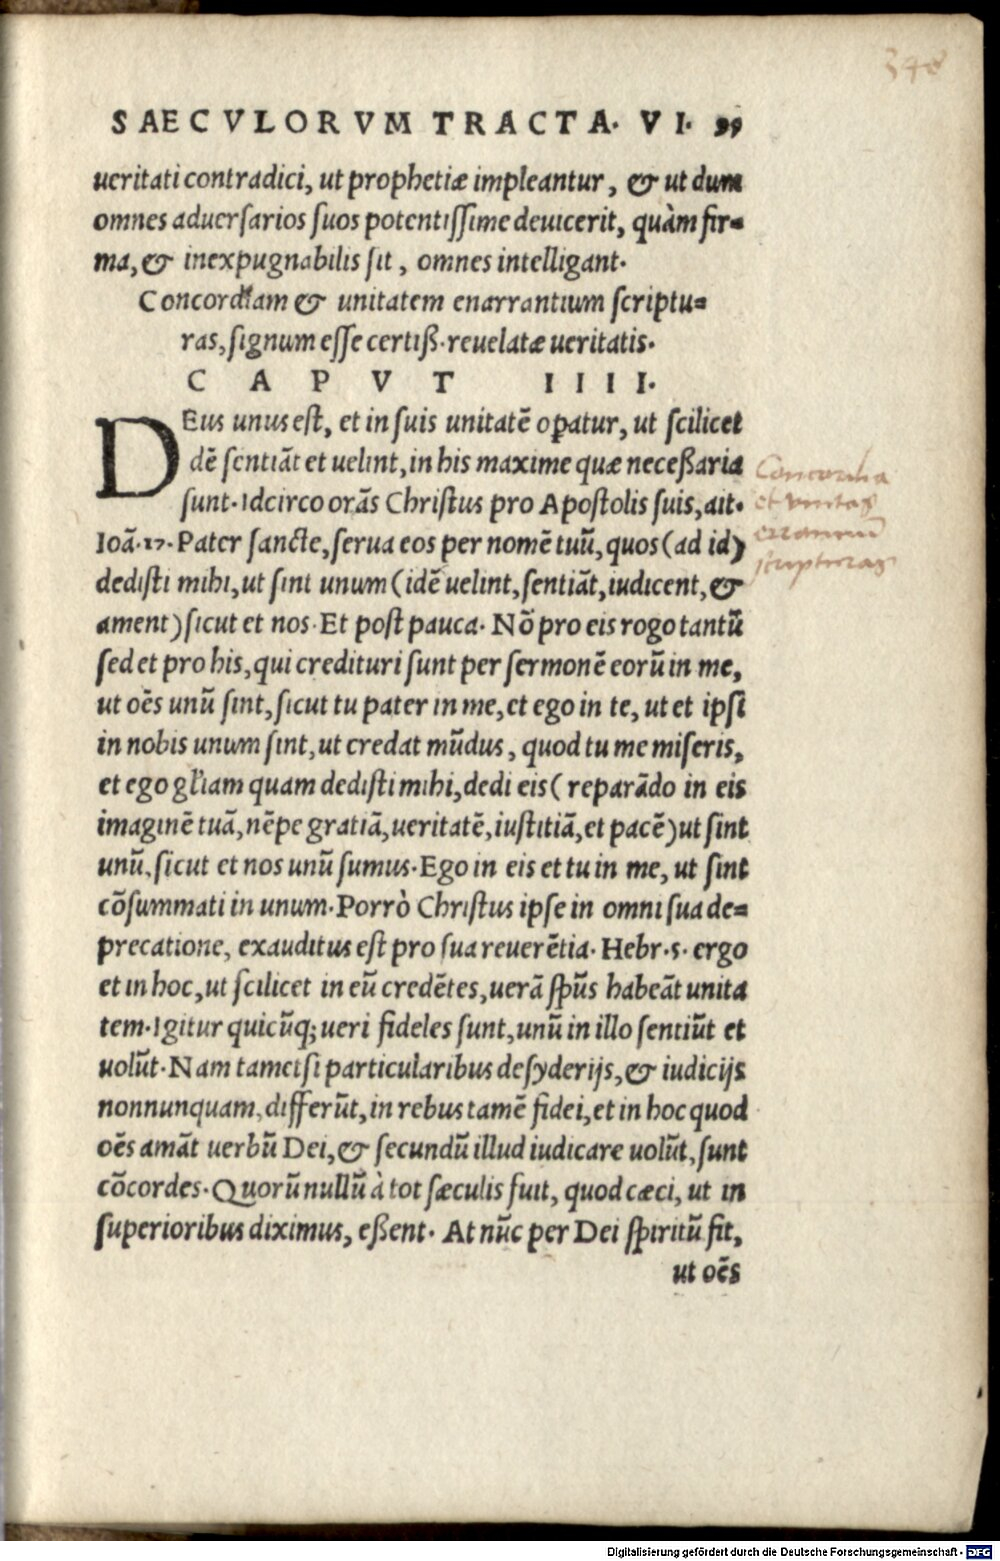 348
SAECVLORVM TRACTA. VI. 99
ueritati contradici, ut prophetiæ impleantur, & ut dum
omnes aduersarios suos potentissime deuicerit, quàm fir=
ma, & inexpugnabilis sit, omnes intelligant.
Concordiam & unitatem enarrantium scriptu=
ras, signum esse certiß. reuelatæ ueritatis.
CAPVT IIII.
DEus unus est, et in suis unitatē opatur, ut scilicet
dē sentiāt et uelint, in his maxime quæ neceßaria
sunt. Idcirco orās Christus pro Apostolis suis, ait.
Ioā.17. Pater sancte, serua eos per nomē tuū, quos (ad id)
dedisti mihi, ut sint unum (idē uelint, sentiāt, iudicent, &
ament) sicut et nos. Et post pauca. Nō pro eis rogo tantū
sed et pro his, qui credituri sunt per sermonē eorū in me,
ut oēs unū sint, sicut tu pater in me, et ego in te, ut et ipsi
in nobis unum sint, ut credat mūdus, quod tu me miseris,
et ego gl'iam quam dedisti mihi, dedi eis (reparādo in eis
imaginē tuā, nēpe gratiā, ueritatē, iustitiā, et pacē) ut sint
unū, sicut et nos unū sumus. Ego in eis et tu in me, ut sint
cōsummati in unum. Porrò Christus ipse in omni sua de=
precatione, exauditus est pro sua reuerētia. Hebr.5. ergo
et in hoc, ut scilicet in eū credētes, uerā spūs habeāt unita
tem. Igitur quicūq; ueri fideles sunt, unū in illo sentiūt et
uolūt. Nam tametsi particularibus desyderijs, & iudicijs
nonnunquam, differūt, in rebus tamē fidei, et in hoc quod
oēs amāt uerbū Dei, & secundū illud iudicare uolūt, sunt
cōcordes. Quorū nullū à tot sæculis fuit, quod cæci, ut in
superioribus diximus, eßent. At nūc per Dei spiritū fit,
ut oēs
Concordia
et unitas
scripturas
Digitalisierung gefördert durch die Deutsche Forschungsgemeinschaft - DFG